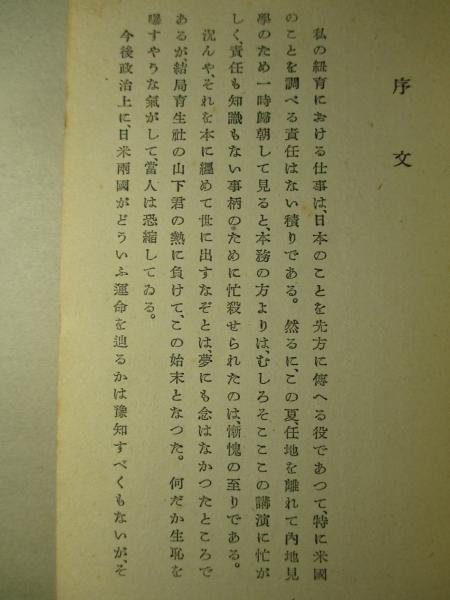 序文
私の紐育における仕事は、日本のことを先方に傳へる役であつて、特に米國
のことを調べる責任はない積りである。然るに、この夏、任地を離れて內地見
學のため一時歸朝して見ると、本務の方よりは、むしろそこここの講演に忙が
しく、責任も知識もない事柄のために忙殺せられたのは、慚愧の至りである。
況んや、それを本に纒めて世に出すなぞとは、夢にも念はなかつたところで
あるが、結局育生社の山下君の熱に負けて、この始末となつた。何だか生恥を
曝すやうな氣がして、當人は恐縮してゐる。
今後政治上に、日米兩國がどういふ運命を辿るかは豫知すべくもないが、そ